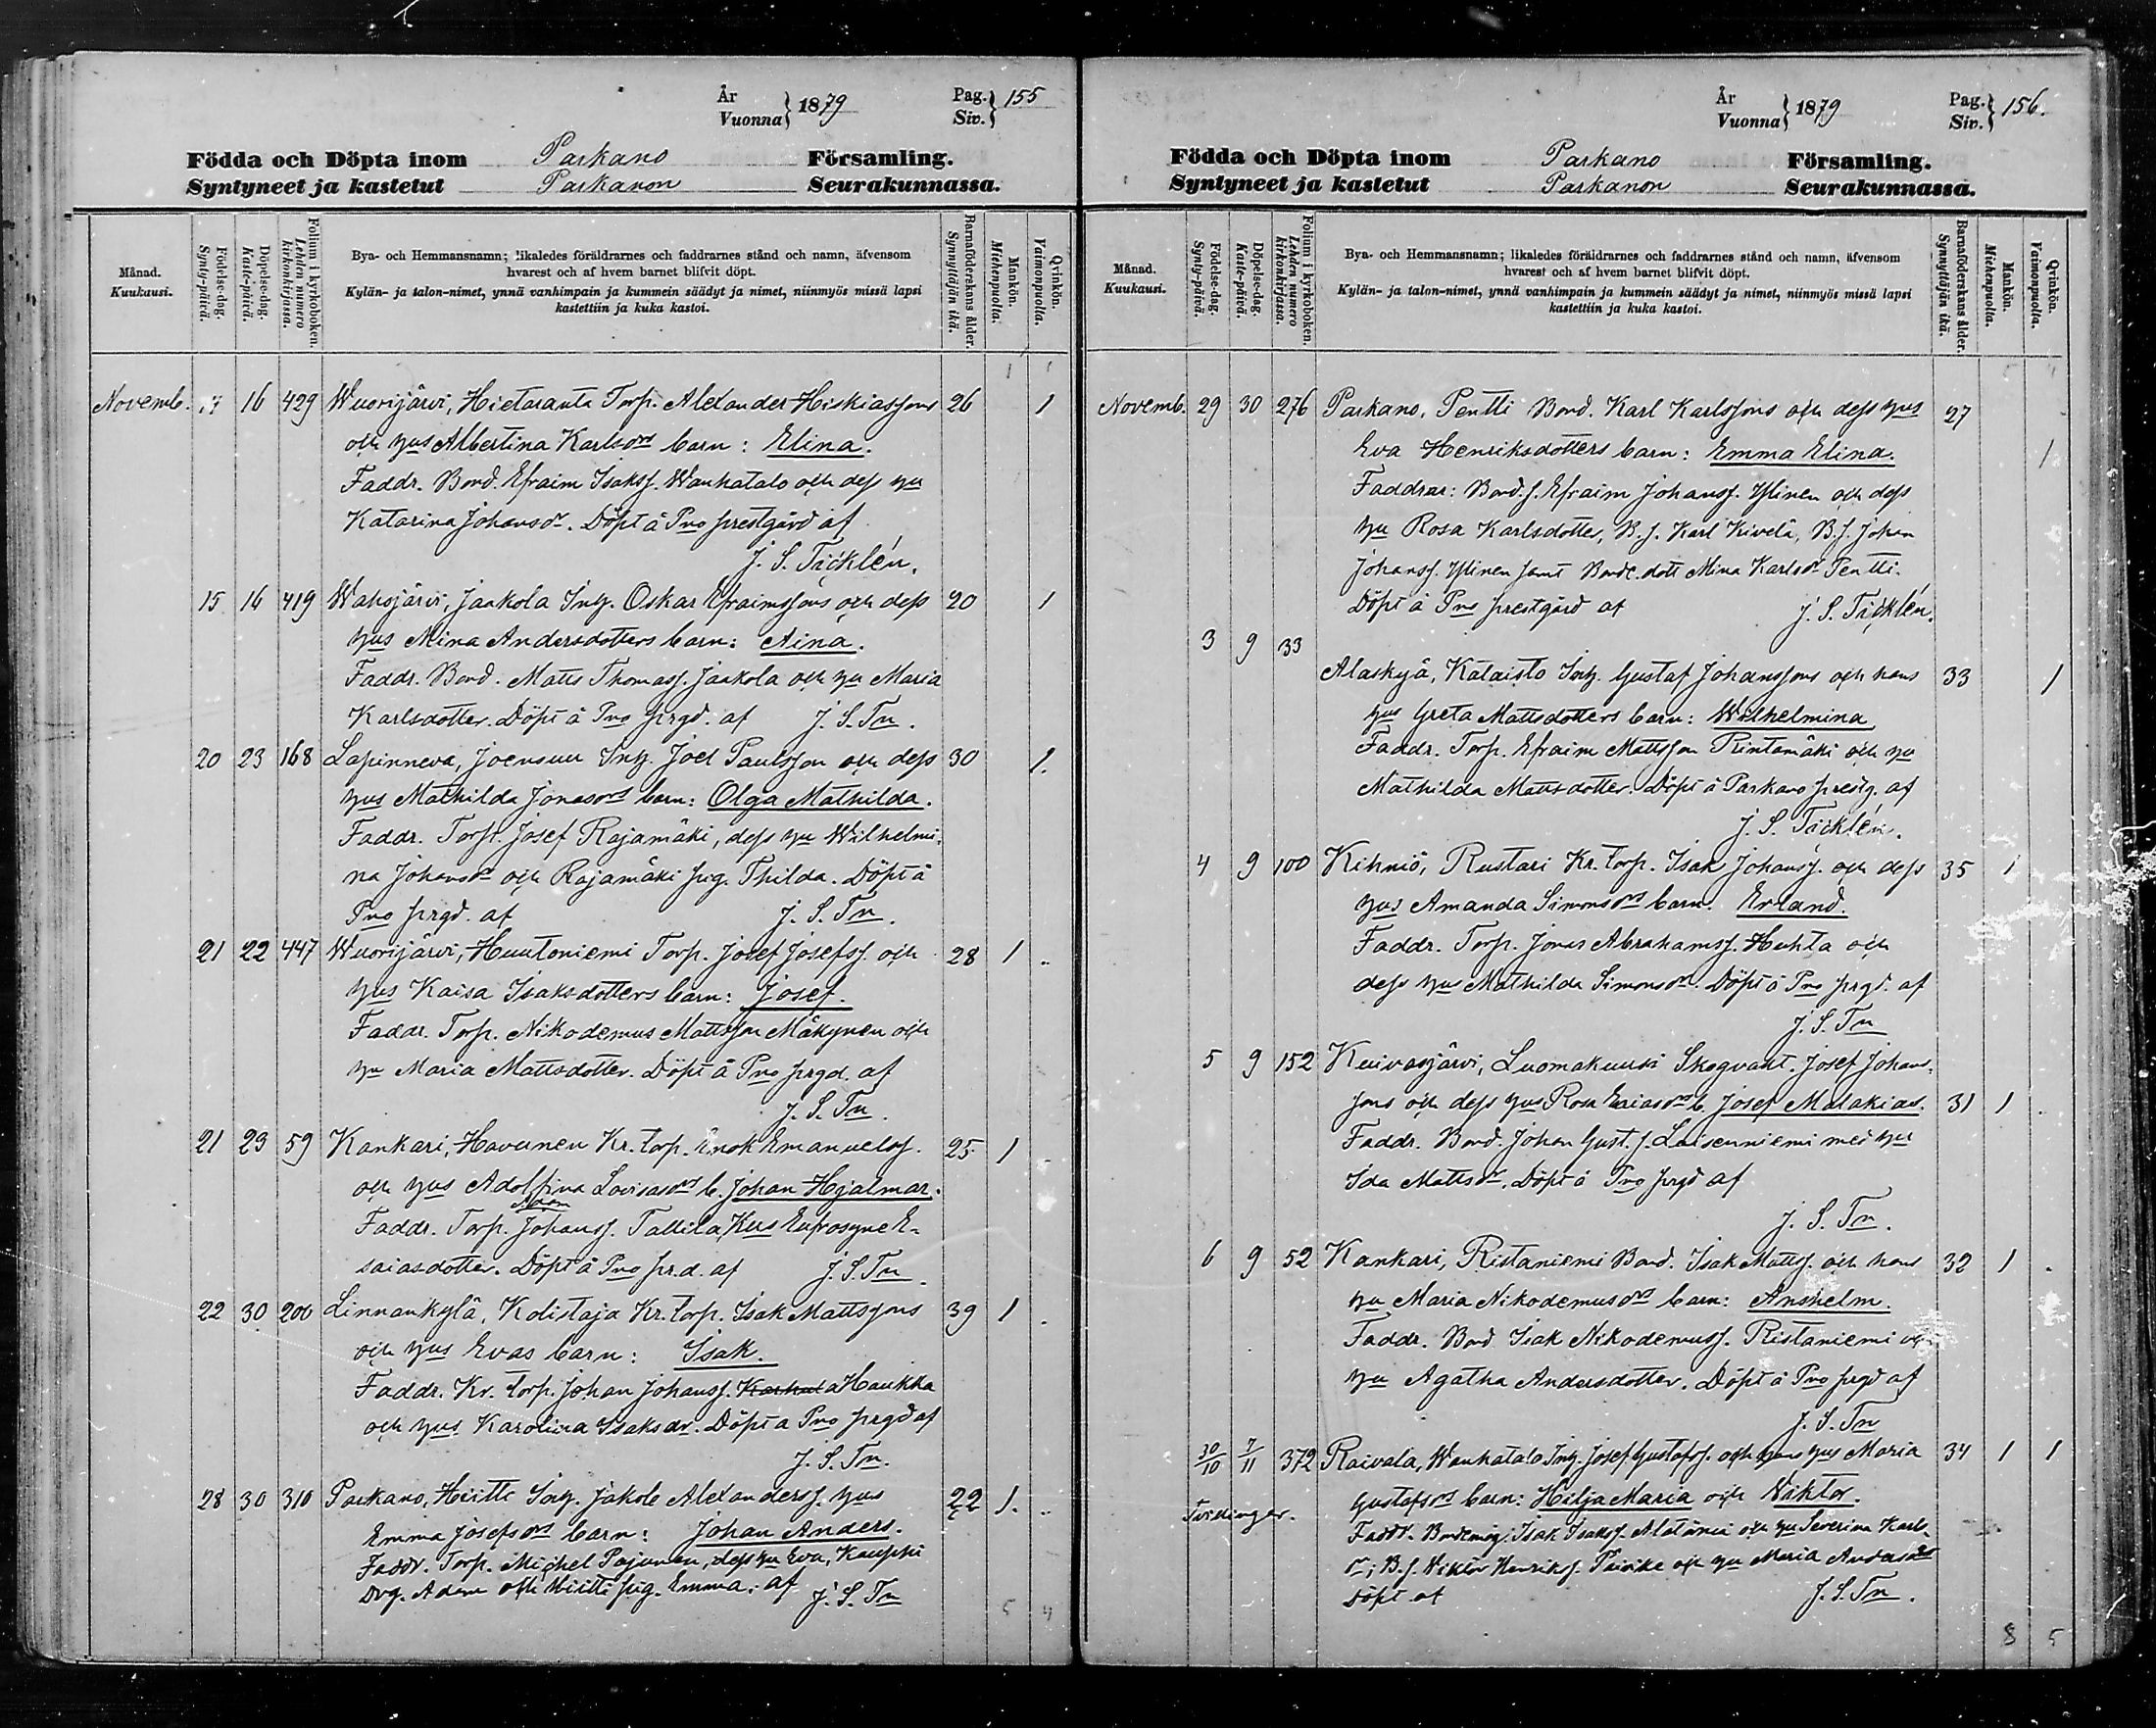 År
Vuonna } 1879
Pag.
Siv. } 155
Födda och Döpta inom Parkano Församling.
Syntyneet ja kastetut Parkanon Seurakunnassa.
Månad.
Kuukausi.
Födelse-dag.
Synty-päivä.
Döpelse-dag.
Kaste-päivä.
Folium i kyrkoboken.
Lehden numero
kirkonkirjassa.
Bya- och Hemmansnamn; likaledes föräldrarnes och faddrarnes stånd och namn, äfvensom
hvarest och af hvem barnet blifvit döpt.
Kylän- ja talon-nimet, ynnä vanhimpain ja kummein säädyt ja nimet, niinmyös missä lapsi
kastettiin ja kuka kastoi.
Barnaföderskans ålder.
Synnyttäjän ikä.
Mankön.
Miehenpuolta.
Qvinkön.
Vaimonpuolta.
1 1
Novemb. 14 16 429 Wuorijärvi, Hietaranta Torp. Alexander Hiskiassons 26 1
och hus Albertina Karlsdrs barn: Elina.
Faddr. Bond. Efraim Isakss. Wanhatalo och dess hu
Katarina Johansdr. Döpt å Pno prestgård af
J. S. Täcklén.
15 16 419 Wahojärvi, Jaakola Inh. Oskar Efraimssons och dess 20 1
hus Mina Andersdotters barn: Aina.
Faddr. Bond. Matts Thomass. Jaakola och hu Maria
Karlsdotter. Döpt å Pno prgd. af J. S. Tn.
20 23 168 Lapinneva, Joensuu Inh. Joel Paulsson och dess 30 1.
hus Mathilda Jonasdrs barn: Olga Mathilda.
Faddr. Torp. Josef Rajamäki, dess hu Wilhelmi-
na Johansdr och Rajamäki pig. Thilda. Döpt å
Pno prgd. af J. S. Tn.
21 22 447 Wuorijärvi, Huutoniemi Torp. Josef Josefss. och 28 1 ..
hus Kaisa Isaksdotters barn: Josef.
Faddr. Torp. Nikodemus Mattsson Mäkynen och
hu Maria Mattsdotter. Döpt å Pno prgd. af
J. S. Tn.
21 23 59 Kankari, Havunen Kr. torp. Enok Emanuelss. 25 1
och hus Adolfina Lovisasdrs b. Johan Hjalmar.
Faddr. Torp. Johanss. Tallila, Kus Eufrosyne E-
saiasdotter. Döpt å Pno pr.d. af J. S. Tn.
22 30 200 Linnankylä, Kolistaja Kr. torp. Isak Mattssons 39 1 .
och hus Evas barn: Isak.
Faddr. Kr. torp. Johan Johanss. Haukka
och hus Karolina Isaksdr. Döpt å Pno prgd af
J. S. Tn.
28 30 310 Parkano, Hiitti Inh. Jakob Alexanderss. hus 22 1. ..
Emma Josefsdrs barn: Johan Anders.
Faddr. Torp. Michel Pajunen, dess hu Eva, Kauppi
Drg. Adam och Hiitti pig. Emma. af J. S. Tn
5 4
År
Vuonna } 1879
Pag.
Siv. } 156.
Födda och Döpta inom Parkano Församling.
Syntyneet ja kastetut Parkanon Seurakunnassa.
Månad.
Kuukausi.
Födelse-dag.
Synty-päivä.
Döpelse-dag.
Kaste-päivä.
Folium i kyrkoboken.
Lehden numero
kirkonkirjassa.
Bya- och Hemmansnamn; likaledes föräldrarnes och faddrarnes stånd och namn, äfvensom
hvarest och af hvem barnet blifvit döpt.
Kylän- ja talon-nimet, ynnä vanhimpain ja kummein säädyt ja nimet, niinmyös missä lapsi
kastettiin ja kuka kastoi.
Barnaföderskans ålder.
Synnyttäjän ikä.
Mankön.
Miehenpuolta.
Qvinkön.
Vaimonpuolta.
5 4
Novemb. 29 30 276 Parkano, Pentti Bond. Karl Karlssons och dess hus 27
Eva Henriksdotters barn: Emma Elina. 1
Faddrar: Bond. s. Efraim Johanss. Ylinen och dess
hu Rosa Karlsdotter, B. s. Karl Kivelä, B. s. Johan
Johanss. Ylinen samt Bonde. dott Mina Karlsdr Pentti.
Döpt å Pno prestgård af J. S. Täcklén.
3 9 33
Alaskyä, Kataisto Inh. Gustaf Johanssons och hans 33 1
hus Greta Mattsdotters barn: Wilhelmina
Faddr. Torp. Efraim Mattsson Rintamäki och hu
Mathilda Mattsdotter. Döpt å Parkano prestg. af
J. S. Täcklén.
4 9 100 Kihniö, Rustari Kr. torp. Isak Johanss. och dess 35 1
hus Amanda Simonsdrs barn. Erland.
Faddr. Torp. Jonas Abrahamss. Huhta och
dess hus Mathilda Simonsdr. Döpt å Pno prgd. af
J. S. Tn
5 9 152 Kuivasjärvi, Luomakuusi Skogvakt. Josef Johans-
sons och dess hus Rosa Esaiasdrs b. Josef Malakias. 31 1 .
Faddr. Bond. Johan Gust. s. Leiseniemi med hu
Ida Mattsdr. Döpt å Pno prgd af
J. S. Tn.
6 9 52 Kankari, Ristaniemi Bond. Isak Mattss. och hans 32 1 .
hu Maria Nikodemusdrs barn: Anshelm.
Faddr. Bond Isak Nikodemuss. Ristaniemi och
hu Agatha Andersdotter. Döpt å Pno prgd af
J. S. Tn
30/10 7/11 372 Raivala, Wanhatalo Inh. Josef Gustafss. och hans hus Maria 34 1 1
Tvillingar. Gustafsdrs barn: Hilja Maria och Wiktor.
Faddr. Bondemåg. Isak Isakss. Alatönä och hu Severina Karls-
dr; B. s. Viktor Henrikss. Päivike och hu Maria Andersdr
Döpt af J. S. Tn.
8 5